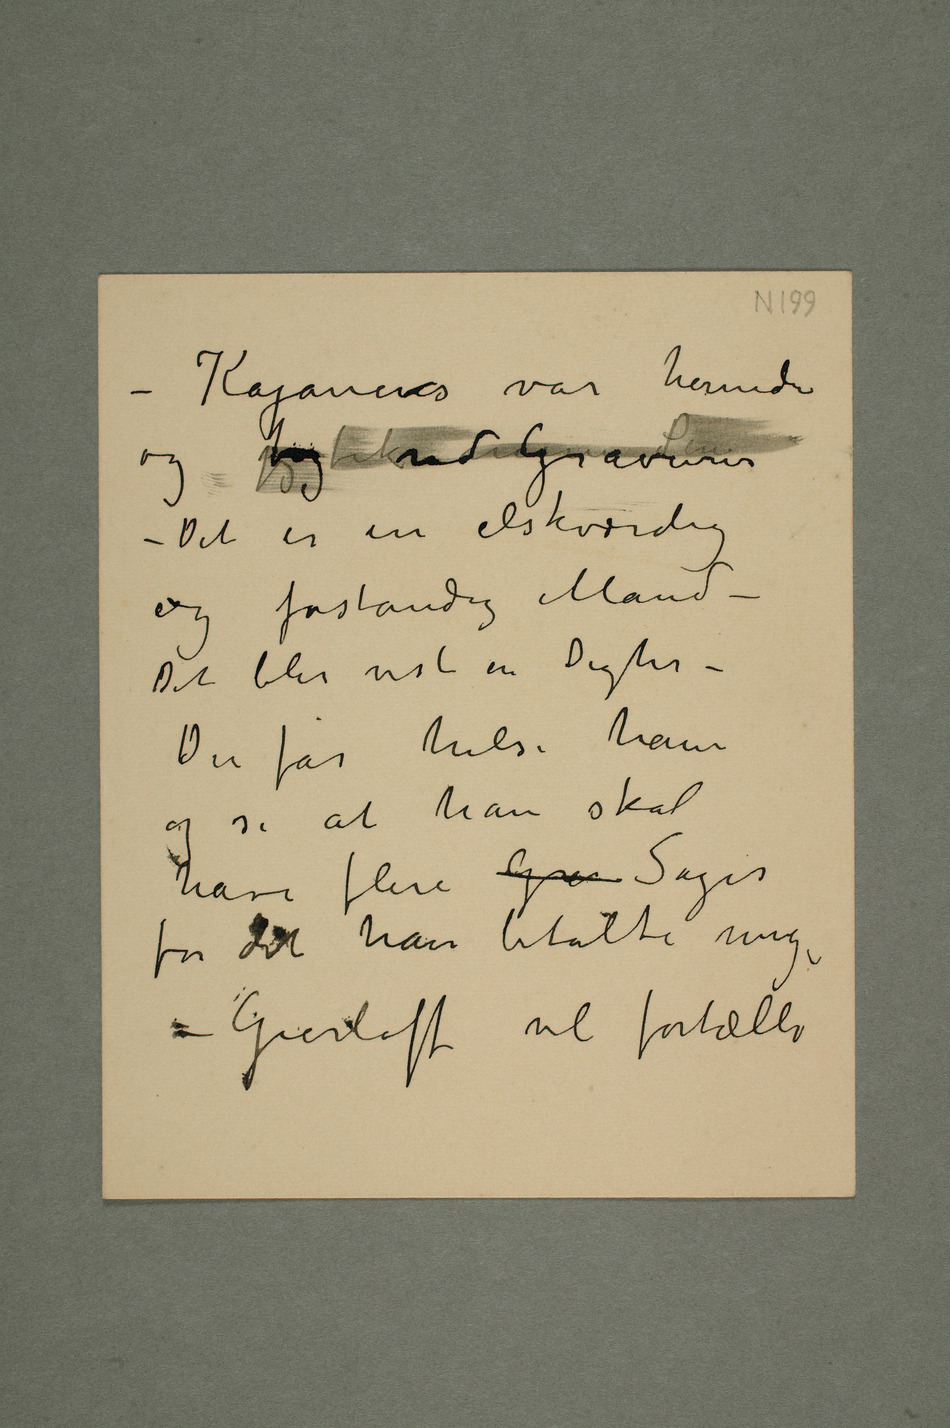 N 199
– Kajanus var hernede
og tog ud Gravurer
– Det er en elskværdig
og fostandig Mand –
Det blir vist en Digter –
Du får hilse ham
og si at han skal
have flere Gra Sager
for det han betalte mig,
– Gierløff vil fortælle